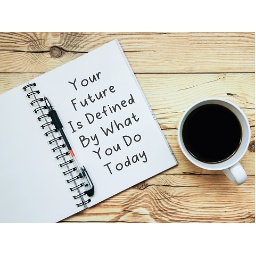 Your
Future
Is Defined
By What
You Do
Today